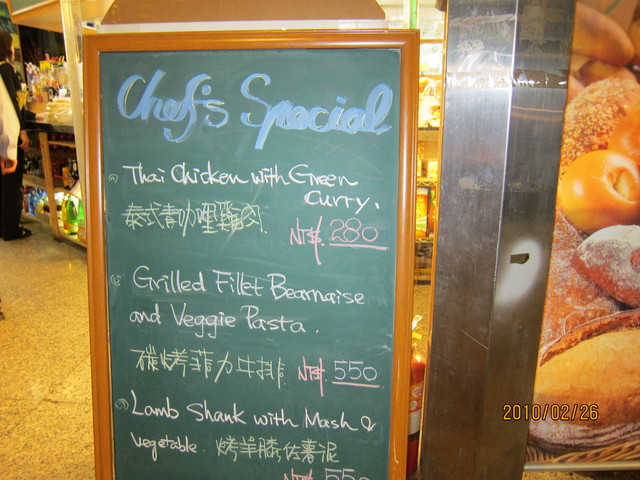 Chef's Special
Thai Chicken with Green
Curry.
泰式青咖哩雞肉.
NT$ 280
Grilled Fillet Bearnaise
and Veggie Pasta.
碳烤菲力牛排
NT$ 550
Lamb Shank with Mash &
Vegetable 烤羊膝佐薯泥
NT$ 550
2010/02/26